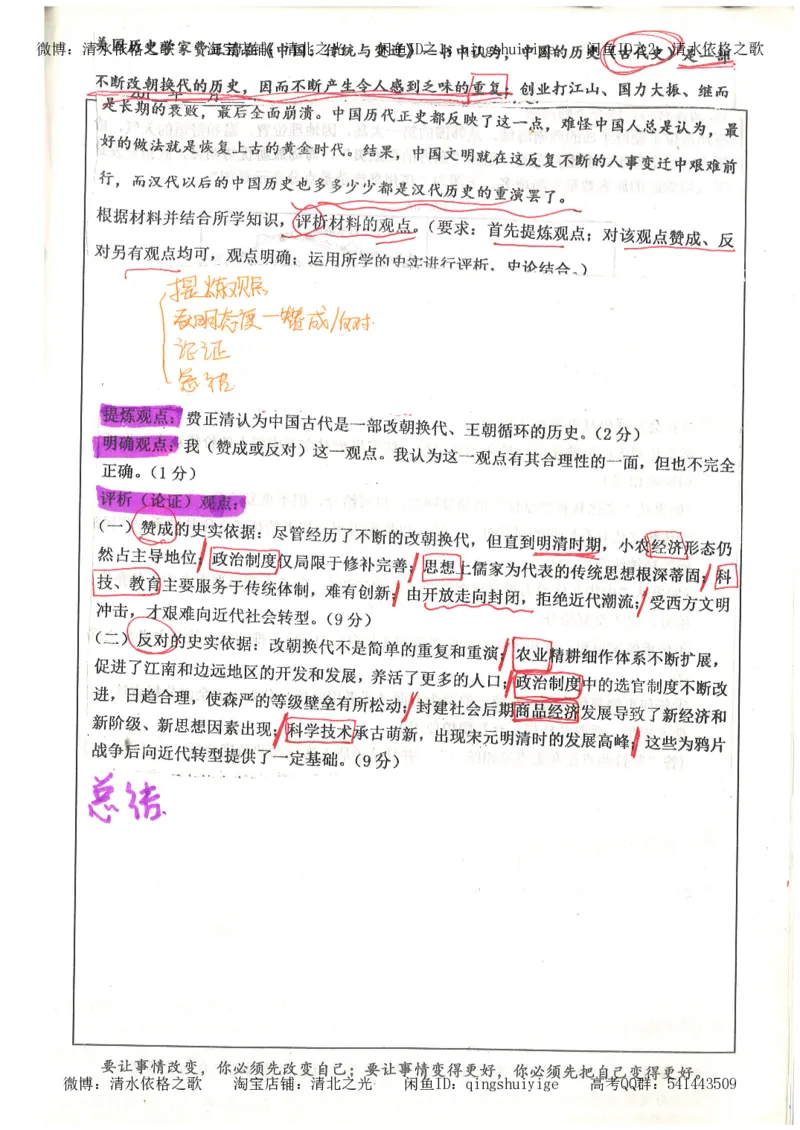 美国历史学家费正清在《中国：传统与变迁》一书中认为，中国的历史（古代史）是一部
微博：清水依格之歌 淘宝店铺：清北之光 闲鱼ID之1：qingshuiyige 闲鱼ID之2：清水依格之歌
不断改朝换代的历史，因而不断产生令人感到乏味的重复：创业打江山、国力大振、继而
是长期的衰败，最后全面崩溃。中国历代正史都反映了这一点，难怪中国人总是认为，最
好的做法就是恢复上古的黄金时代。结果，中国文明就在这反复不断的人事变迁中艰难前
行，而汉代以后的中国历史也多多少少都是汉代历史的重演罢了。
根据材料并结合所学知识，评析材料的观点。（要求：首先提炼观点；对该观点赞成、反
对另有观点均可，观点明确；运用所学的史实进行评析，史论结合。）
提炼观点
表明态度一赞成/反对
论证
总结
提炼观点：费正清认为中国古代是一部改朝换代、王朝循环的历史。（2分）
明确观点：我（赞成或反对）这一观点。我认为这一观点有其合理性的一面，但也不完全
正确。（1分）
评析（论证）观点：
（一）赞成的史实依据：尽管经历了不断的改朝换代，但直到明清时期，小农经济形态仍
然占主导地位；政治制度仅局限于修补完善；思想上儒家为代表的传统思想根深蒂固；科
技、教育主要服务于传统体制，难有创新；由开放走向封闭，拒绝近代潮流；受西方文明
冲击，才艰难向近代社会转型。（9分）
（二）反对的史实依据：改朝换代不是简单的重复和重演；农业精耕细作体系不断扩展，
促进了江南和边远地区的开发和发展，养活了更多的人口；政治制度中的选官制度不断改
进，日趋合理，使森严的等级壁垒有所松动；封建社会后期商品经济发展导致了新经济和
新阶级、新思想因素出现；科学技术承古萌新，出现宋元明清时的发展高峰；这些为鸦片
战争后向近代转型提供了一定基础。（9分）
总结
要让事情改变，你必须先改变自己；要让事情变得更好，你必须先把自己变得更好。
微博：清水依格之歌 淘宝店铺：清北之光 闲鱼ID：qingshuiyige 高考QQ群：541443509